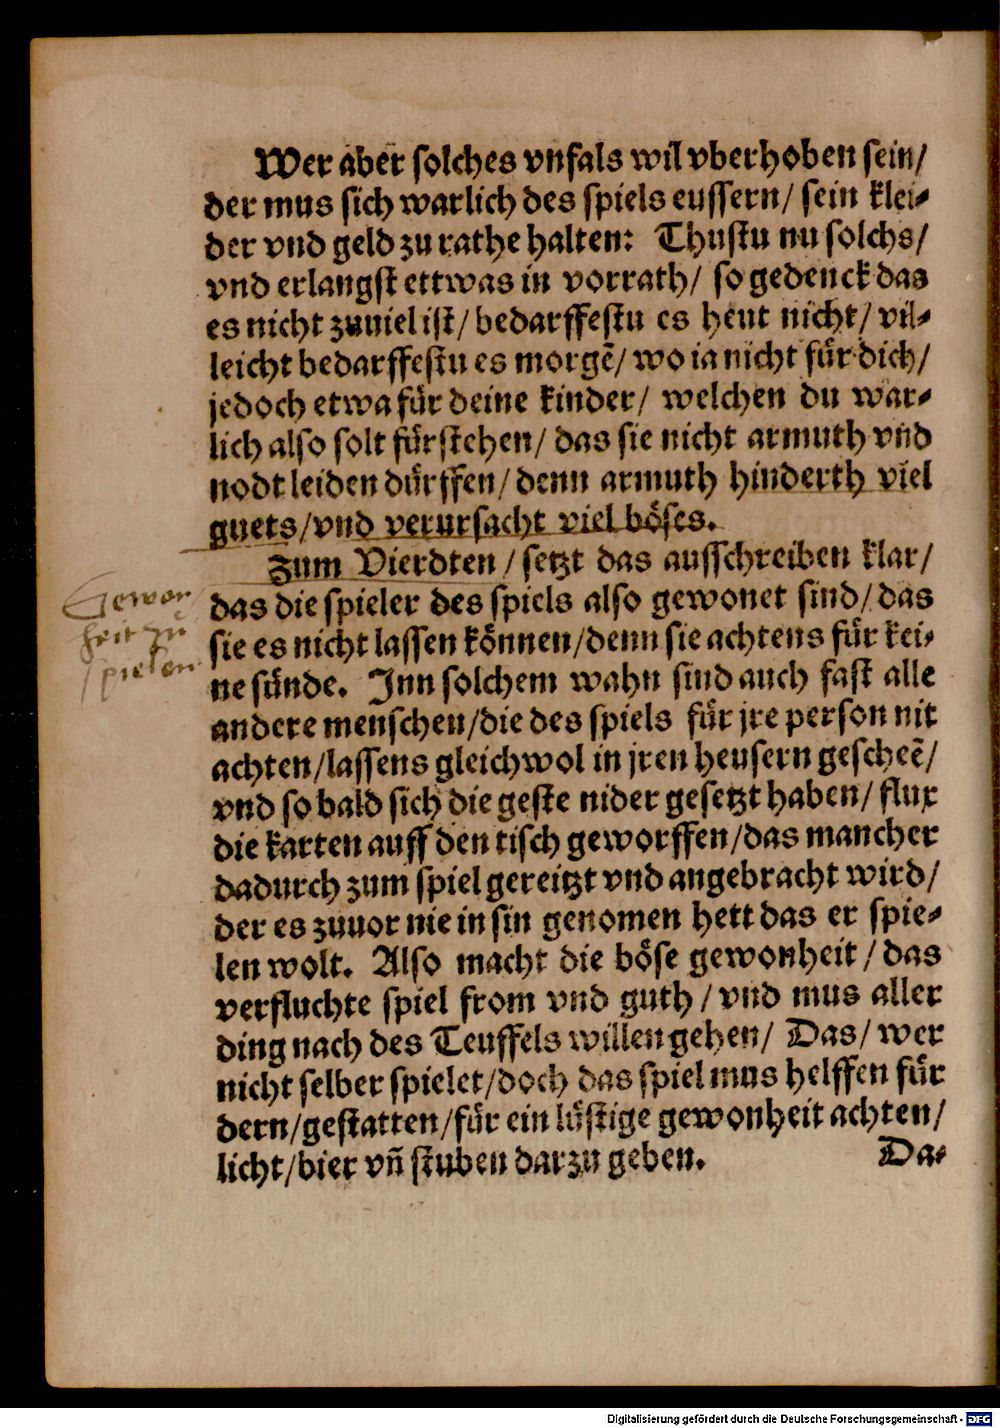 Wer aber solches vnfals wil vberhoben sein/
der mus sich warlich des spiels eussern/ sein klei-
der vnd geld zu rathe halten: Thustu nu solchs/
vnd erlangst ettwas in vorrath/ so gedenck das
es nicht zuuiel ist/ bedarffestu es heut nicht/ vil-
leicht bedarffestu es morgẽ/ wo ia nicht für dich/
jedoch etwa für deine kinder/ welchen du war-
lich also solt fürstehen/ das sie nicht armuth vnd
nodt leiden dürffen/ denn armuth hinderth viel
guets/vnd verursacht viel böses.
Zum Vierdten/ setzt das ausschreiben klar/
das die spieler des spiels also gewonet sind/ das
sie es nicht lassen können/denn sie achtens für kei-
ne sünde. Inn solchem wahn sind auch fast alle
andere menschen/die des spiels für jre person nit
achten/lassens gleichwol in jren heusern gescheẽ/
vnd so bald sich die geste nider gesetzt haben/ flux
die karten auff den tisch geworffen/das mancher
dadurch zum spiel gereitzt vnd angebracht wird/
der es zuuor nie in sin genomen hett das er spie-
len wolt. Also macht die böse gewonheit/ das
verfluchte spiel from vnd guth/ vnd mus aller
ding nach des Teuffels willen gehen/ Das/ wer
nicht selber spielet/doch das spiel mus helffen für
dern/gestatten/für ein lüstige gewonheit achten/
licht/bier vñ stuben darzu geben.
Da-
Gewon
heit zu
spielen
Digitalisierung gefördert durch die Deutsche Forschungsgemeinschaft - DFG